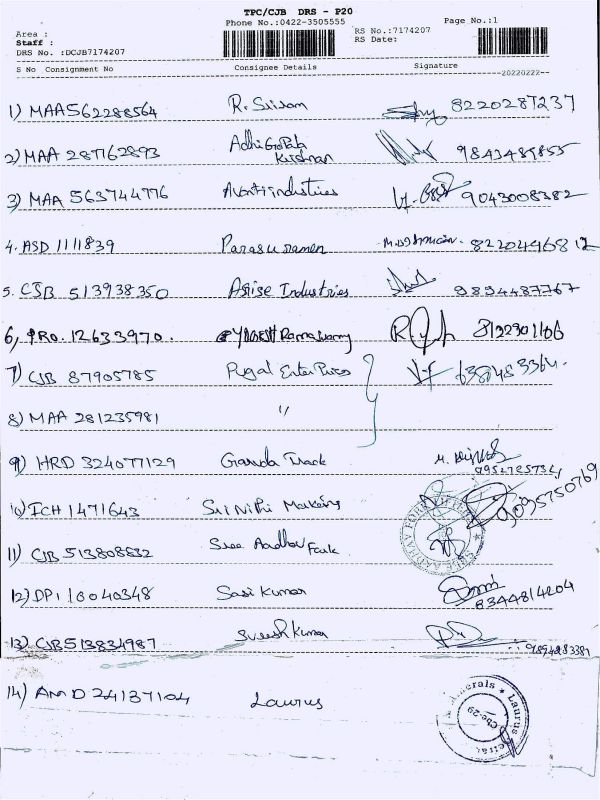 TPC/CJB DRS - P20
Phone No.:0422-3505555 Page No.:1
Area :
Staff :
DRS No. :DCJB7174207
RS No.:7174207
RS Date:
S No Consignment No Consignee Details Signature
20220222--
1) MAA562288564 R. Sriram 8220287237
2) MAA 287162893 Adhi Krishnan 9843489855
3) MAA 563744776 Avanti industries 9043008382
4. ASD 1111839 Parasuraman 8220496812
5. CJB 513938350 Arise Industries 9894487767
6) PRO. 12633970. YOGESH Ramaswamy 8122901106
7) CJB 87905785 Rigal EnterPrises
8) MAA 281235981 "
9) HRD 324077129 Garuda Track
10) ICH 1471643 Sri Nithi Marketing 9095750769
11) CJB 513808832 Sree Aadhav
12) DP1 18040348 Sasi Kumar 8344814204
13) CJB513834987 Suresh Kumar
14) AMD 24137104 Laurus
Laurus Cbe-29